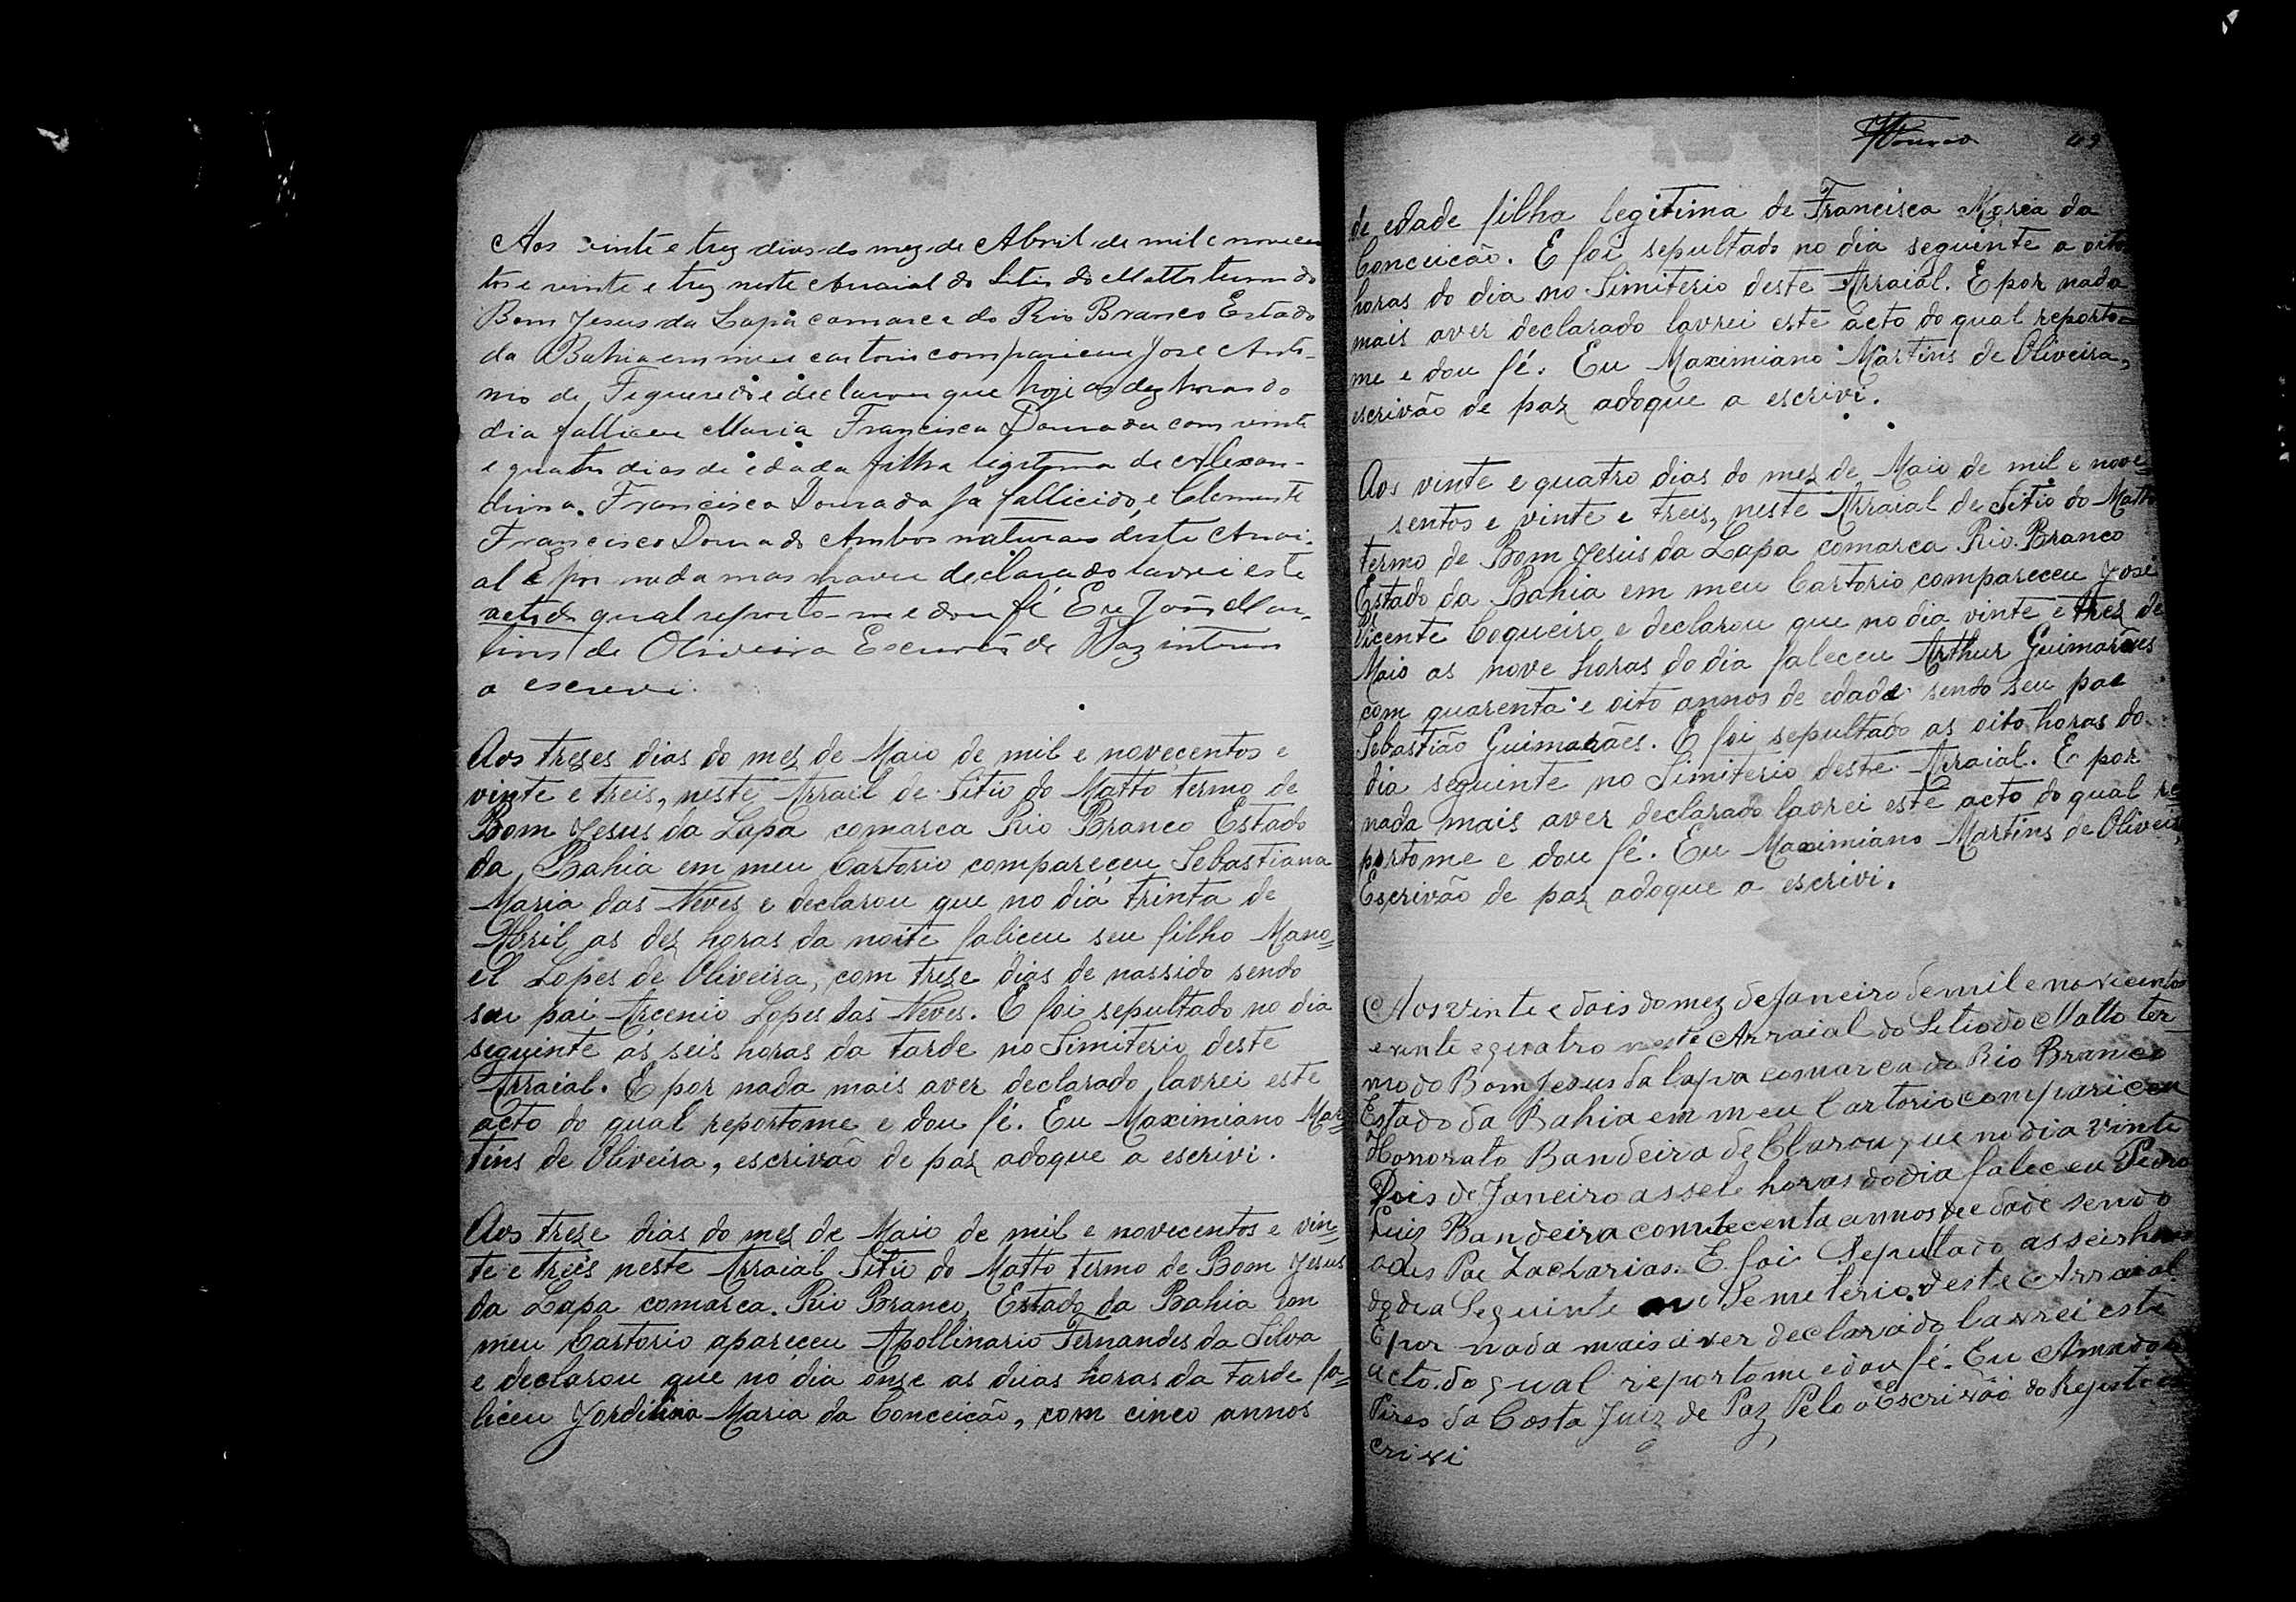 Aos vinte e trez dias do mez de Abril de mil e novecen
tos e vinte e trez neste Arraial do Sitio do Matto termo do
Bom Jesus da Lapa comarca do Rio Branco Estado
da Bahia em meu cartorio compariceu José Anto-
nio de Figueredo e declarou que hoje as dez horas do
dia falliceu Maria Francisca Dourada com vinte
e quatro dias de edada filha legitima de Alexan-
drina Francisca Dourada ja fallicido, e Clemente
Francisco Dourado Ambos naturaes deste Arrai-
al E por nada mas haver declarado lavrei este
acto do qual reporto-me e dou fé Eu João Mar-
tins de Oliveira Escrivão de Paz interino
o escrevi.
Aos trezes dias do mez de Maio de mil e noveçentos e
vinte e treis, neste Arrail de Sitio do Matto termo de
Bom Jesus da Lapa comarca Rio Branco Estado
da Bahia em meu Cartorio compareçeu Sebastiana
Maria das Neves e declarou que no dia trinta de
Abril as dez horas da noite faliceu seu filho Mano=
el Lopes de Oliveira, com treze dias de nassido sendo
seu pai Arcenio Lopes das Neves. E foi sepultado no dia
seguinte ás seis horas da tarde no Simiterio deste
Arraial. E por nada mais aver declarado, lavrei este
acto do qual reportome e dou fé. Eu Maximiano Mar=
tins de Oliveira, escrivão de paz adoque a escrivi.
Aos treze dias do mez de Maio de mil e novecentos e vin=
te e treis neste Arraial Sitio do Matto termo de Bom Jesus
da Lapa comarca Rio Branco, Estado da Bahia em
meu Cartorio apareçeu Apollinario Fernandes da Silva
e declarou que no dia onze as duas horas da tarde fa=
liceu Maria da Conceição, com cinco annos
de edade filha legitima de Francisca Maria da
Conceicão. E foi sepultado no dia seguinte a oito
horas do dia no Simiterio deste Arraial. E por nada
mais aver declarado lavrei este acto do qual reporto=
me e dou fé. Eu Maximiano Martins de Oliveira,
escrivão de paz adoque a escrivi.
Aos vinte e quatro dias do mez de Maio de mil e nove=
sentos e vinte e treis, neste Arraial de Sitio do Matto
termo de Bom Jesus da Lapa comarca Rio Branco
Estado da Bahia em meu Cartorio compareceu José
Vicente Coqueiro e declarou que no dia vinte e trez de
Maio as nove horas do dia faleceu Arthur Guimarães
com quarenta e oito annos de edade sendo seu pae
Sebastião Guimarães. E foi sepultado as oito horas do
dia seguinte no Simiterio deste Arraial. E por
nada mais aver declarado lavrei este acto do qual re=
portome e dou fé. Eu Maximiano Martins de Oliveira,
Escrivão de paz adoque a escrivi.
Aos vinte e dois do mez de Janeiro de mil e novicentos
e vinte e quatro neste Arraial do Sitio do Matto ter
mo do Bom Jesus da Lapa comarca do Rio Branco
Estado da Bahia em meu Cartorio compariceu
Honorato Bandeira de Clarou que no dia vinte
Dois de Janeiro as sete horas do dia faleceu Pedro
Luiz Bandeira com annos de edade sendo
Pae Zacharias. E foi Sepultado as seis horas
do dia Seguinte no Semeterio deste Arraial
E por nada mais aver declarado lavrei este
acto do qual reportome e dou fé. Eu
Pires da Costa Juiz de Paz Pelo o Escrivão do
crivi